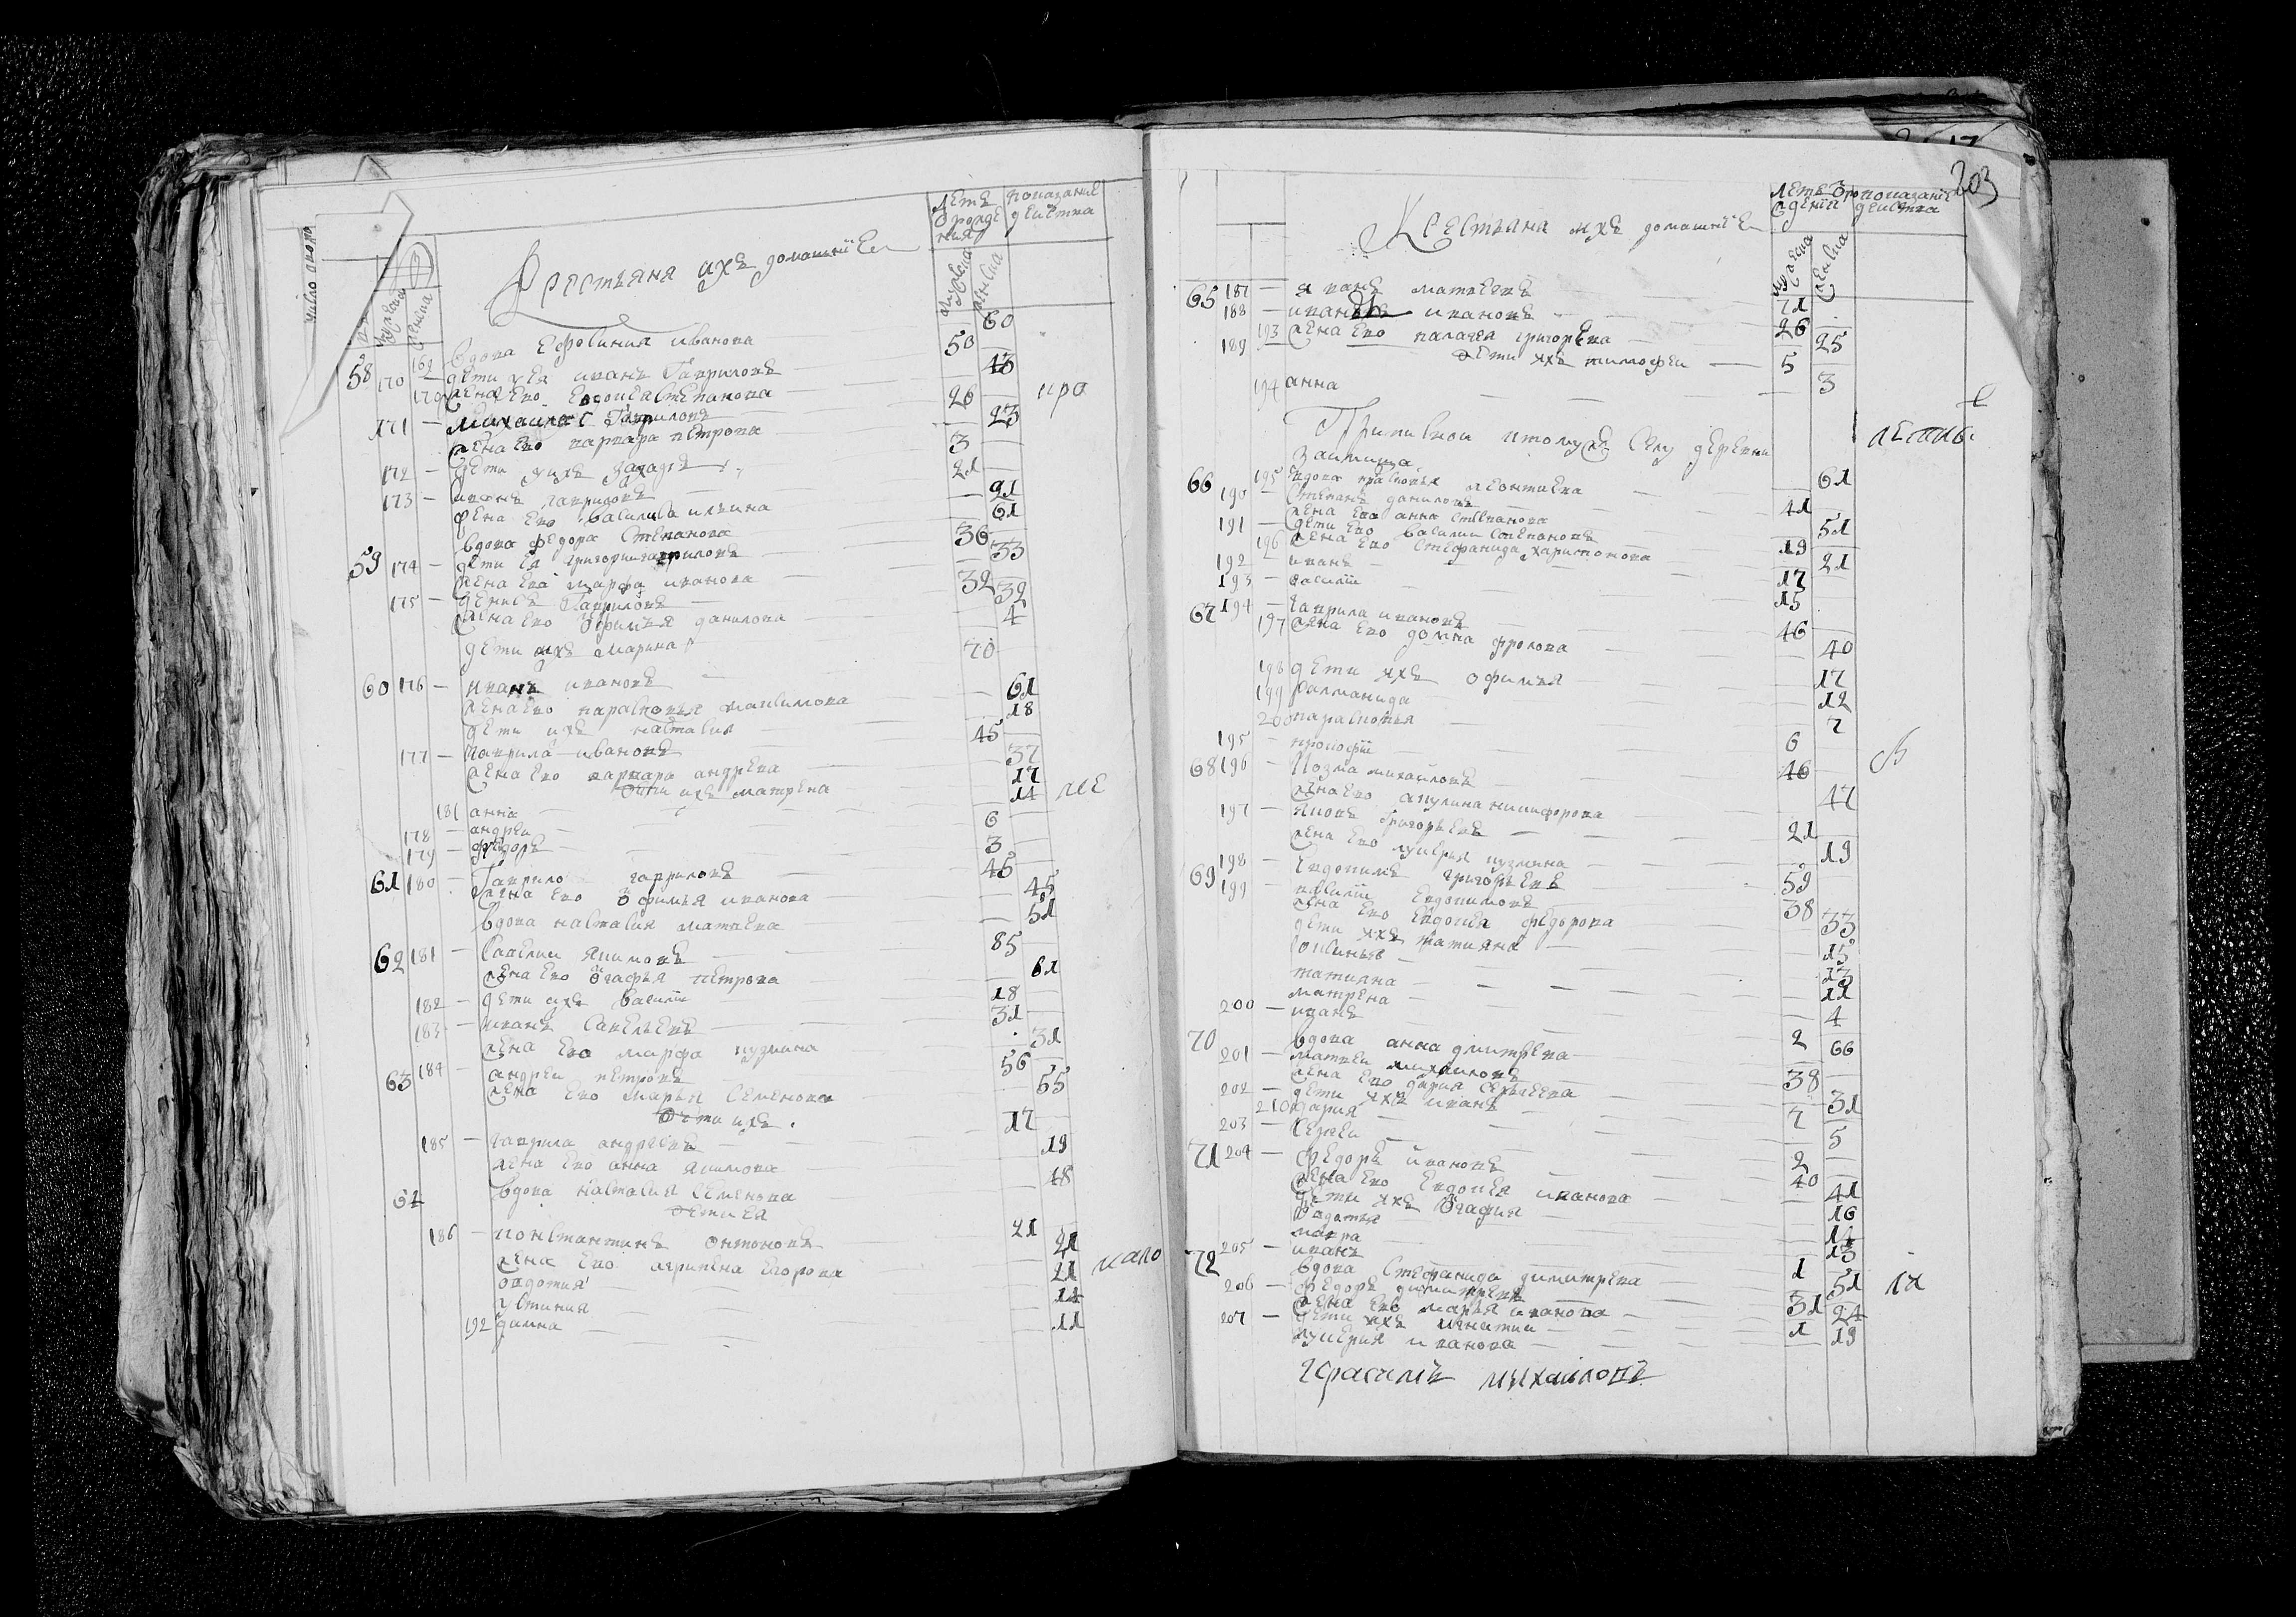 число дворо
летъ показание
Ѡрожде действа
ния
мужеска
женска
Крестьяня ихъ домашние
169 вдова Ефросиния иванова 60
58 170 — дети у ея иванъ Гавриловъ 50
170 жена ево степанова 43
171 — Михаила Гавриловъ 26
жена ево варвара петрова 23
про
172 — дети у ихъ захаръ 3
173 — иванъ гавриловъ 21
жена ево василиса ильина 21
вдова федора Степанова 61
59 174 — дети ея григории гавриловъ 36
жена ева марфа иванова 33
175 — денисъ Гавриловъ 32
жена ево Ѡфимья данилова 32
дети ихъ марина 4
60 176 — иванъ ивановъ 70
жена ево парасковья максимова 61
дети ихъ настасия 18
177 — гаврила ивановъ 45
жена ево варвара андреева 37
дети ихъ матрена 17
181 анна 14
178 — андреи 6
179 — федоръ 3
61 180 — Гаврило гавриловъ 45
жена ево Ѡфимья иванова 45
вдова настасия матвева 51
62 181 — Савелии якимовъ 85
жена ево Ѡгафья петрова 61
182 — дети ихъ василии 18
183 — иванъ Савельевъ 31
жена ево марфа кузмина 31
63 184 — андреи петровъ 56
жена ево марья Семенова 55
дети ихъ
185 — гаврила андреевъ 17
жена ево анна якимова 19
64 вдова настасия Семенова 48
дети ея
186 — константинъ онтоновъ 21
жена ево агрипена Егорова 21
овдотия 21
устиния 14
192 домна 11
203
Крестьяна ихъ домашние
летъ Ѡро показание
ждении действа
мужеска
женска
65 187 — иванъ матвеевъ 71
188 — ивановъ 26
193 жена ево палагея григорьева 25
189 дети ихъ тимофеи 5
194 анна 3
Приписнои ктомужъ Селу деревни
Заимища
66 195 вдова прасковья леонтиева 61
190 — Степанъ даниловъ 41
жена ево анна степанова 51
191 — дети ево василии Степановъ 19
196 жена ево Стефанида харитонова 21
192 — иванъ 17
193 — василии 15
67 194 — гаврила ивановъ 46
197 жена ево домна фролова 40
198 дети ихъ офимья 17
199 12
200 парасковья 7
195 — прокофии 6
68 196 — Козма михаиловъ 46
жена ево акулина никифорова 47
197 — яковъ григорьевъ 21
жена ево лукерья кузмина 19
69 198 — Евдокимъ григорьевъ 59
199 — василии Евдокимовъ 38
жена ево Евдокея федорова 33
дети ихъ татияна 15
13
татияна 11
матрена 4
200 — иванъ 2
70 вдова анна дмитрева 66
201 — матвеи михаиловъ 38
жена ево дария Сергеева 31
202 — дети ихъ иванъ 7
210 дария 5
203 — Сергеи 2
71 204 — федоръ ивановъ 40
жена ево Евдокея иванова 41
дети ихъ Ѡгафия 16
Ѡвдотия 14
мавра 13
205 — иванъ 1
72 вдова Стефанида димитрева 51
206 — федоръ димитревъ 31
жена ево марья иванова 24
207 — дети ихъ игнатии 1
лукерия иванова 19
Герасимъ михаиловъ